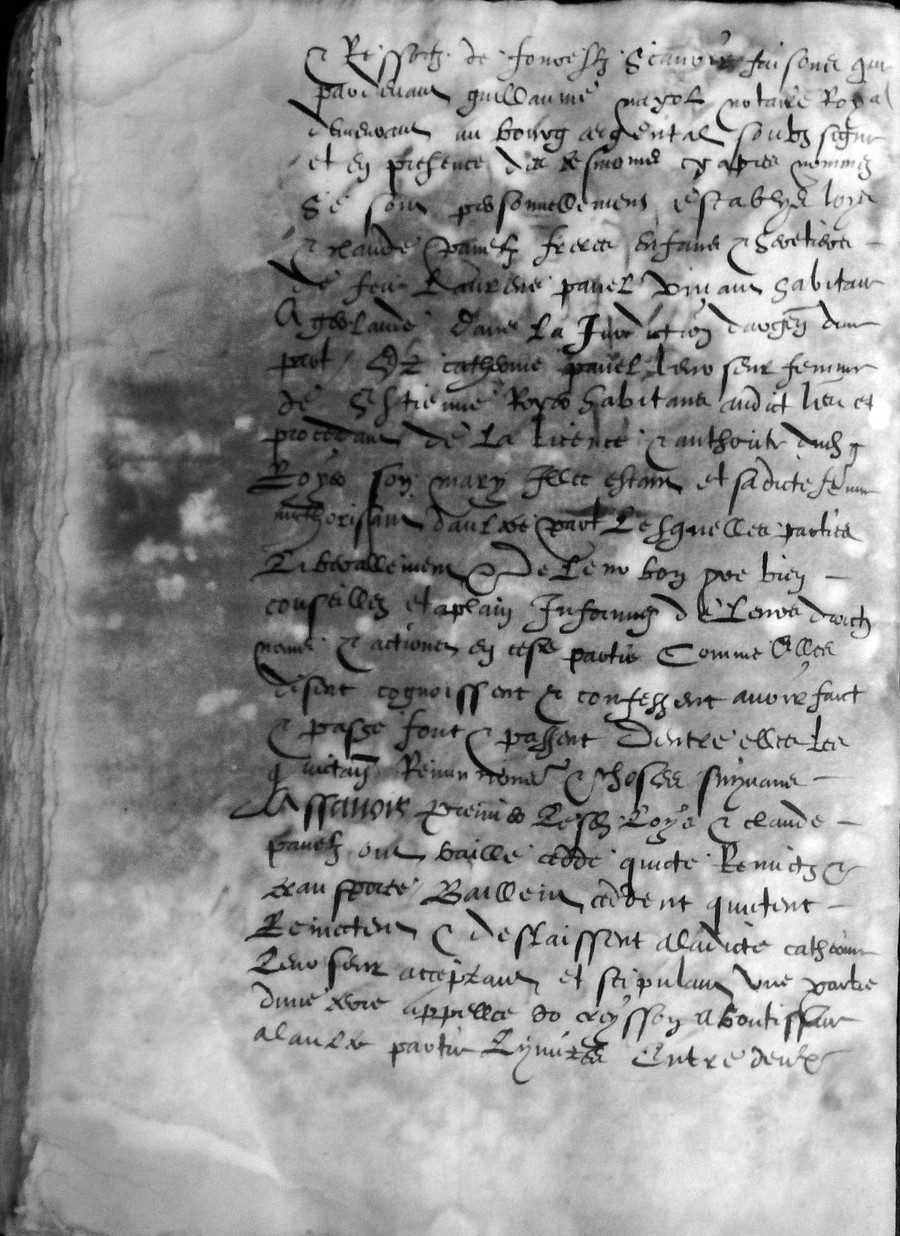 & Ressortz de forestz Scavoir faisons que
pardevant guillaume mayol notaire Royal
demeurant au bourg argental soubz signe
et en presence des tesmoins cy apres nommes
Se sont personnellement establys loys
& claude panelz freres enfans & heretiers
de feu Laurens panel vivant habitant
A geolande dans La Jurisdiction dargen dune
part / Et catherine panel leur seur femme
de Estienne Royes habitans audict lieu et
procedant de La licence & authorite dudict
Royes son mary Illec estant et sadicte femme
authorisant daultre part Lesquelles parties
Liberallement & De Leur bon gre bien
conseilles et aplain Informes de Leurs droictz
noms & actions en ceste partie Comme Elles
disent cognoissent & confessent avoir faict
& passe font & passent Dentre elles Les
quictan Remu & choses suyvans
Assavoir premier Lesdz Loys & claude
panelz ont baille cedde quicte Remictz &
transporte Baillent cedent quictent
Remectent & deslaissent aladicte catherine
Leur seur acceptant et stipulant une partie
dune terre appellee do creysson aboutissant
alaultre partie Entre deulx